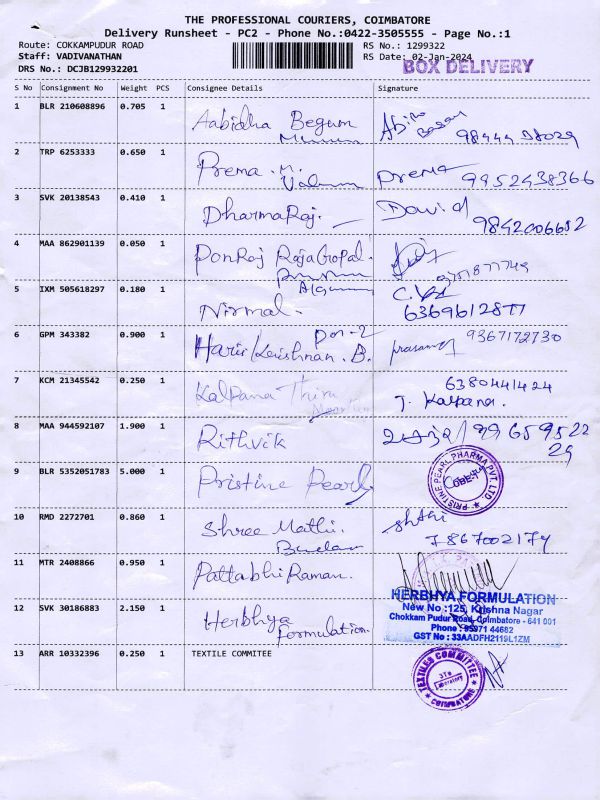 THE PROFESSIONAL COURIERS, COIMBATORE
Delivery Runsheet - PC2 - Phone No.:0422-3505555 - Page No.:1
Route: COKKAMPUDUR ROAD RS No.: 1299322
Staff: VADIVANATHAN RS Date: 02-Jan-2024
DRS No.: DCJB129932201
BOX DELIVERY
S No Consignment No Weight PCS Consignee Details Signature
1 BLR 210608896 0.705 1 Aabidha Begum
2 TRP 6253333 0.650 1 Prema . M. Prema
9952438366
3 SVK 20138543 0.410 1 DharmaRaj. David
9842006652
4 MAA 862901139 0.050 1 PonRaj RajaGopal.
5 IXM 505618297 0.180 1 Nirmal.
6369612877
6 GPM 343382 0.900 1 Harir Krishnan . B.
9367172730
7 KCM 21345542 0.250 1 Kalpana Thiru 6380441424
T. Kalpana.
8 MAA 944592107 1.900 1 Rithvik
9 BLR 5352051783 5.000 1 Pristine Pearl
PRISTINE PEARL PHARMA PVT. LTD
10 RMD 2272701 0.860 1 Shree Mathi.
7867002174
11 MTR 2408866 0.950 1 Pattabhi Raman.
12 SVK 30186883 2.150 1 Herbhya
Formulation.
HERBHYA FORMULATION
New No :125, Krishna Nagar
Chokkam Pudur Road, Coimbatore - 641 001
Phone : 95971 44682
GST No : 33AADFH2119L1ZM
13 ARR 10332396 0.250 1 TEXTILE COMMITEE
TEXTILES COMMITTEE
COIMBATORE